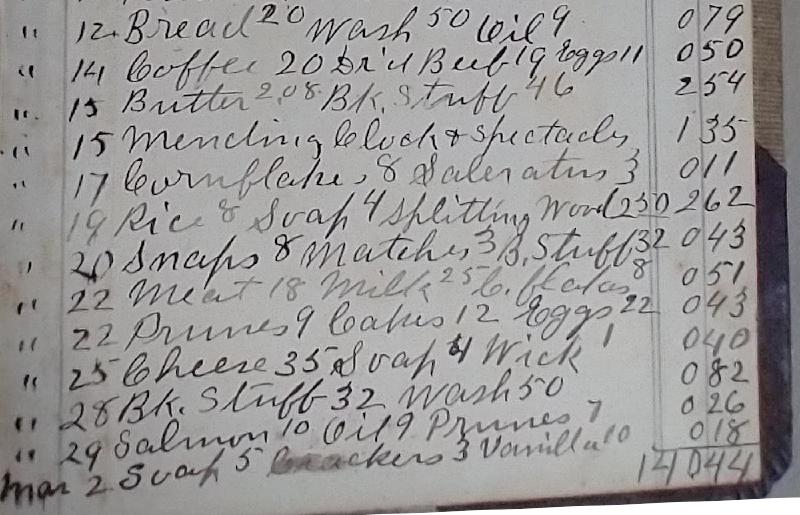 " 12. Bread 20 Wash 50 Oil 9 0 79
" 14 Coffee 20 Dr'd Beef 19 Eggs 11 0 50
" 15 Butter 2.08 Bk. Stuff 46 2 54
" 15 Mending Clock & Spectacles 1 35
" 17 Cornflakes 8 Saleratus 3 0 11
" 19 Rice 8 Soap 4 Splitting Wood 250 2 62
" 20 Snaps 8 Matches 3 B. Stuff 32 0 43
" 22 Meat 18 Milk 25 C. Flakes 8 0 51
" 22 Prunes 9 Cakes 12 Eggs 22 0 43
" 25 Cheese 35 Soap 4 Wick 1 0 40
" 28 Bk. Stuff 32 Wash 50 0 82
" 29 Salmon 10 Oil 9 Prunes 7 0 26
Mar 2 Soap 5 Crackers 3 Vanilla 10 0 18
140 44